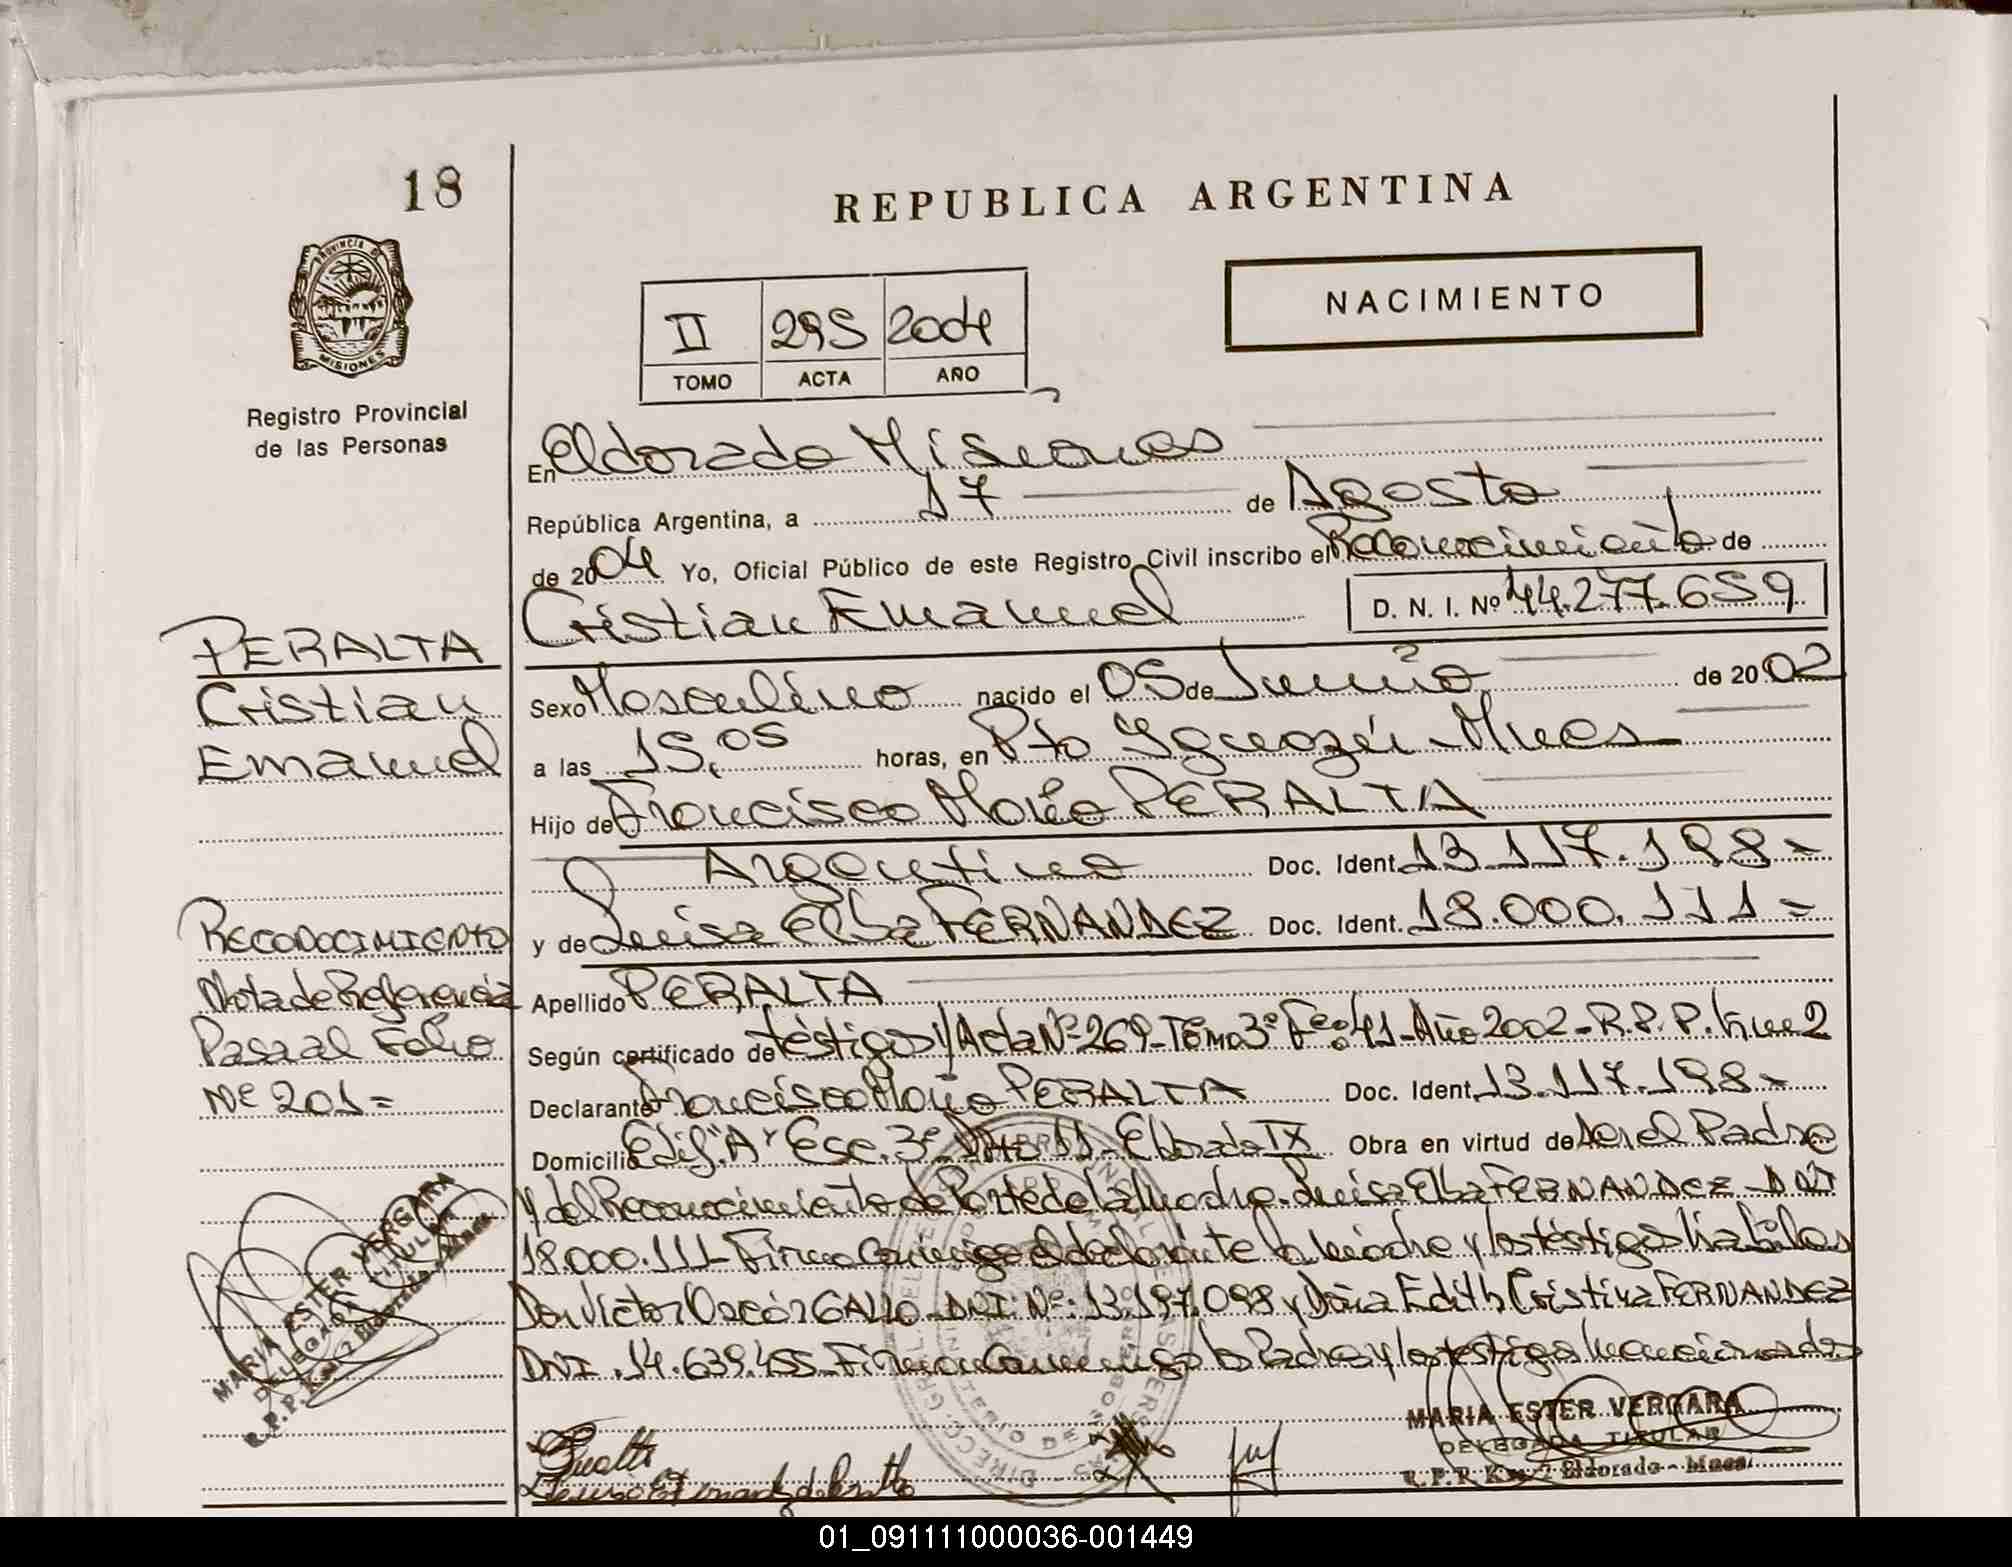 18
REPUBLICA ARGENTINA
PROVINCIA DE
MISIONES
Registro Provincial
de las Personas
NACIMIENTO
II 295 2004
TOMO ACTA AÑO
En Eldorado Misiones
República Argentina, a 17 de Agosto
de 2004 Yo, Oficial Público de este Registro Civil inscribo el Reconocimiento de
Cristian Emanuel D. N. I. Nº 44.277.659
PERALTA
Cristian
Emanuel
Sexo Masculino nacido el 05 de Junio de 2002
a las 15,05 horas, en Pto Iguazú - Mnes
Hijo de Francisco Mario PERALTA
Argentino Doc. Ident. 13.117.198-
y de Luisa Elba FERNANDEZ Doc. Ident. 18.000.111-
RECONOCIMIENTO
Nota de Referencia
Pasa al Folio
Nº 201=
Apellido PERALTA
Según certificado de téstigos y Acta Nº 269- Tomo 3º Fº 41- Año 2002- R.P.P.
Declarante Francisco Mario PERALTA Doc. Ident. 13.117.198-
Domicilio Edif. "A" Esc. 3º Dto 11- Eldorado Obra en virtud de ser el Padre
y del Reconocimiento de Parte de la Madre. Luisa Elba FERNANDEZ - DNI
18.000.111- Firma Conmigo el declarante la Madre y los téstigos hábiles
Don Victor Oscar GALLO- DNI: Nº: 13.197.098 y Doña Edith Cristina FERNANDEZ
DNI. 14.639.455- Firman Conmigo los Padres y los testigos mencionados
MARIA ESTER VERGARA
DELEGADA TITULAR
R.P.P. Km 7 Eldorado - Mnes.
MARIA ESTER VERGARA
DELEGADA TITULAR
R.P.P. Km 7 Eldorado - Mnes.
01_091111000036-001449